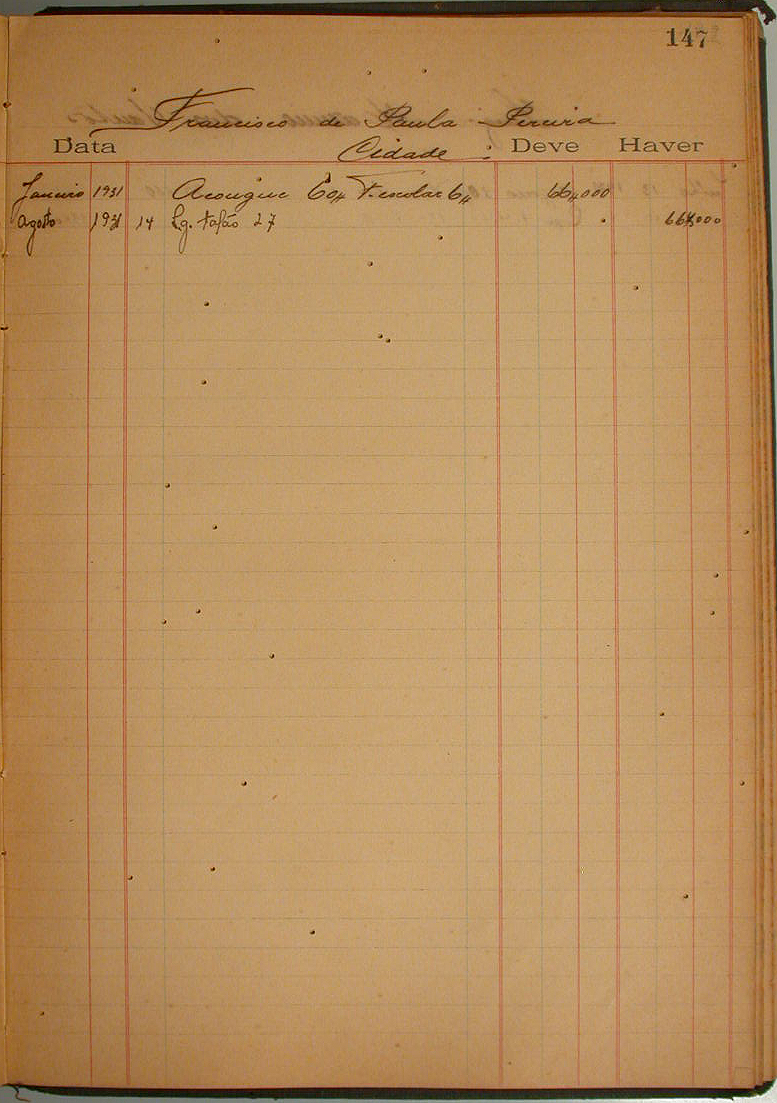 147
Francisco de Paula Pereira
Data Cidade Deve Haver
Janeiro 1931 Acougue 60$ T. escolar 6$ 66$000
Agosto 1931 14 Lg. talão 27 66$000